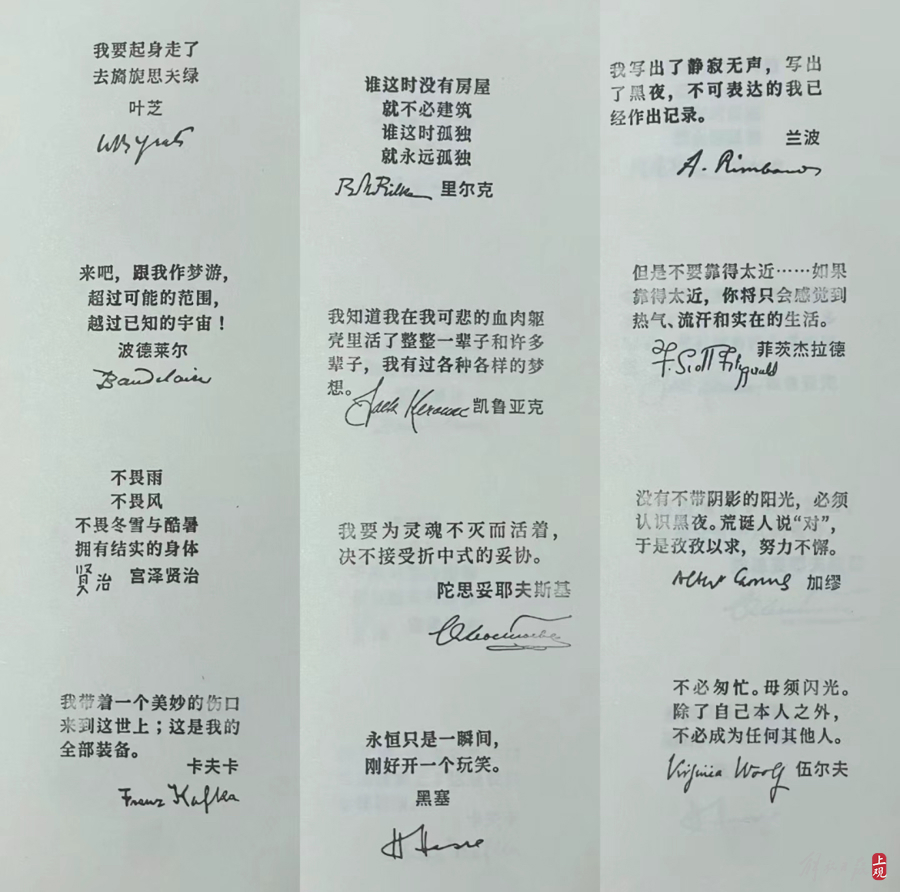 我要起身走了
去旖旎思天绿
叶芝
WBYeats
来吧，跟我作梦游，
超过可能的范围，
越过已知的宇宙！
波德莱尔
Baudelaire
不畏雨
不畏风
不畏冬雪与酷暑
拥有结实的身体
贤治 宫泽贤治
我带着一个美妙的伤口
来到这世上；这是我的
全部装备。
卡夫卡
Franz Kafka
谁这时没有房屋
就不必建筑
谁这时孤独
就永远孤独
RMRilke 里尔克
我知道我在我可悲的血肉躯
壳里活了整整一辈子和许多
辈子，我有过各种各样的梦
想。
Jack Kerouac 凯鲁亚克
我要为灵魂不灭而活着，
决不接受折中式的妥协。
陀思妥耶夫斯基
永恒只是一瞬间，
刚好开一个玩笑。
黑塞
H Hesse
我写出了静寂无声，写出
了黑夜，不可表达的我已
经作出记录。
兰波
A. Rimbaud
但是不要靠得太近……如果
靠得太近，你将只会感觉到
热气、流汗和实在的生活。
F. Scott Fitzgerald 菲茨杰拉德
没有不带阴影的阳光，必须
认识黑夜。荒诞人说“对”，
于是孜孜以求，努力不懈。
Albert Camus 加缪
不必匆忙。毋须闪光。
除了自己本人之外，
不必成为任何其他人。
Virginia Woolf 伍尔夫
上观